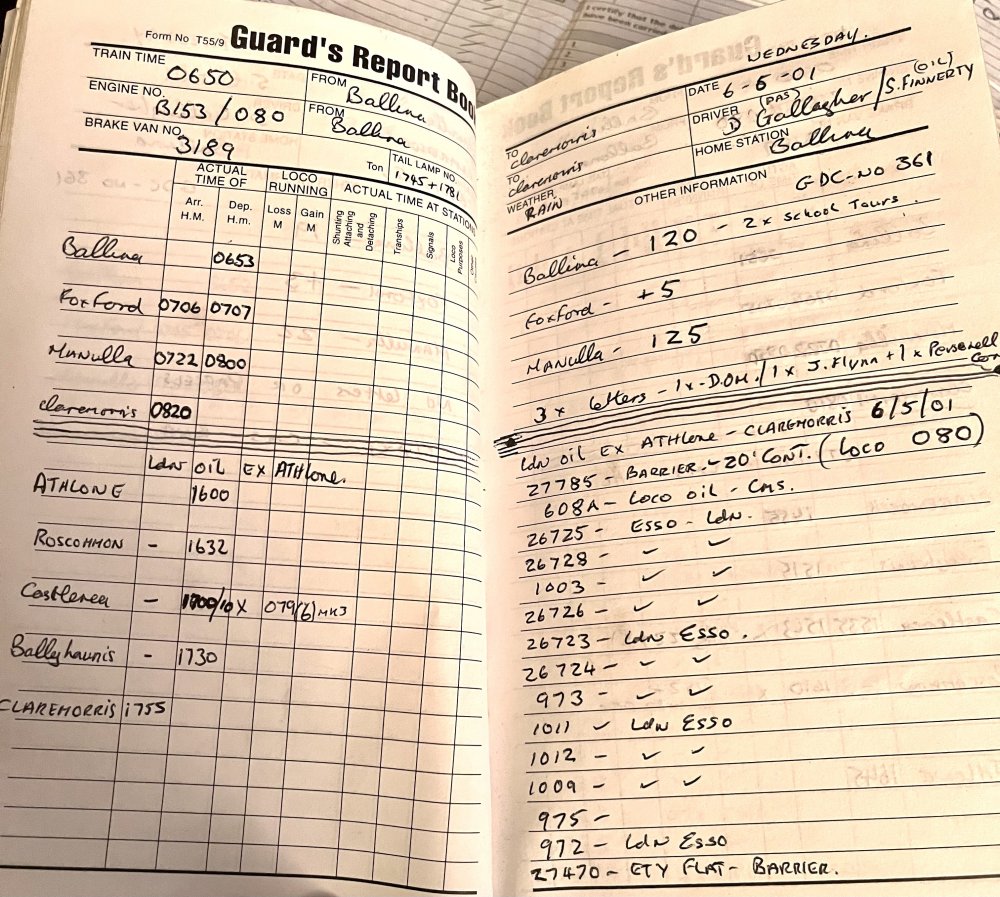 Form No T55/9 Guard's Report Boo
TRAIN TIME 0650 FROM Ballina
ENGINE NO. B153/080 FROM Ballina
BRAKE VAN NO. 3189 Ton TAIL LAMP NO. 1745+1781
ACTUAL TIME OF LOCO RUNNING ACTUAL TIME AT STATION
Arr. H.M. Dep. H.m. Loss M Gain M Shunting Attaching and Detaching Tranships Signals Loco Purposes Other
Ballina 0653
Foxford 0706 0707
Manulla 0722 0800
claremorris 0820
Ldn oil EX Athlone.
ATHLONE 1600
Roscommon - 1632
Castlerea - 1700/10 X 079(6)MK3
Ballyhaunis - 1730
CLAREMORRIS 1755
I certify that the
have been carri
WEDNESDAY.
TO claremorris DATE 6-6-01
TO claremorris DRIVER D (PAS) Gallagher/S. FINNERTY (OIL)
WEATHER RAIN HOME STATION Ballina
OTHER INFORMATION GDC-NO 361
Ballina - 120 - 2x School Tours.
Foxford - +5
Manulla - 125
3 x letters - 1x-D.O.M./1 x J. Flynn + 1 x Personell
Ldn oil EX ATHlone - CLAREMORRIS 6/5/01
27785 - BARRIER - 20' CONT. (Loco 080)
608A - Loco oil - CMS.
26725 - ESSO - Ldn.
26728 - ✓ ✓
1003 - ✓ ✓
26726 - ✓ ✓
26723 - Ldn ESSO.
26724 - ✓ ✓
973 - ✓ ✓
1011 ✓ Ldn ESSO
1012 - ✓ ✓
1009 - ✓ ✓
975 -
972 - Ldn ESSO
27470 - ETY FLAT - BARRIER.